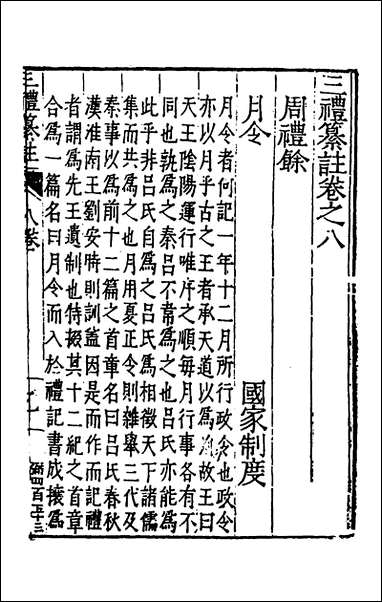 三禮纂註卷之八
周禮餘
月令　國家制度
月令者何記一年十二月所行政令也政令
亦以月乎古之王者承天道以為治故王曰
天王陰陽運行唯序之順毎月行事各有不
同也孰為之秦吕不韋為之也吕氏亦能爲
此乎非吕氏自爲之吕氏爲相徵天下諸儒
集而共爲之也月用夏正令則雜舉三代及
秦事以爲前十二篇之首章名曰吕氏春秋
漢淮南王劉安時則訓蓋因是而作而記禮
者謂爲先王遺制也特掇其十二紀之首章
合爲一篇名曰月令而入於禮記書成㨿爲
三禮纂註　八卷　一